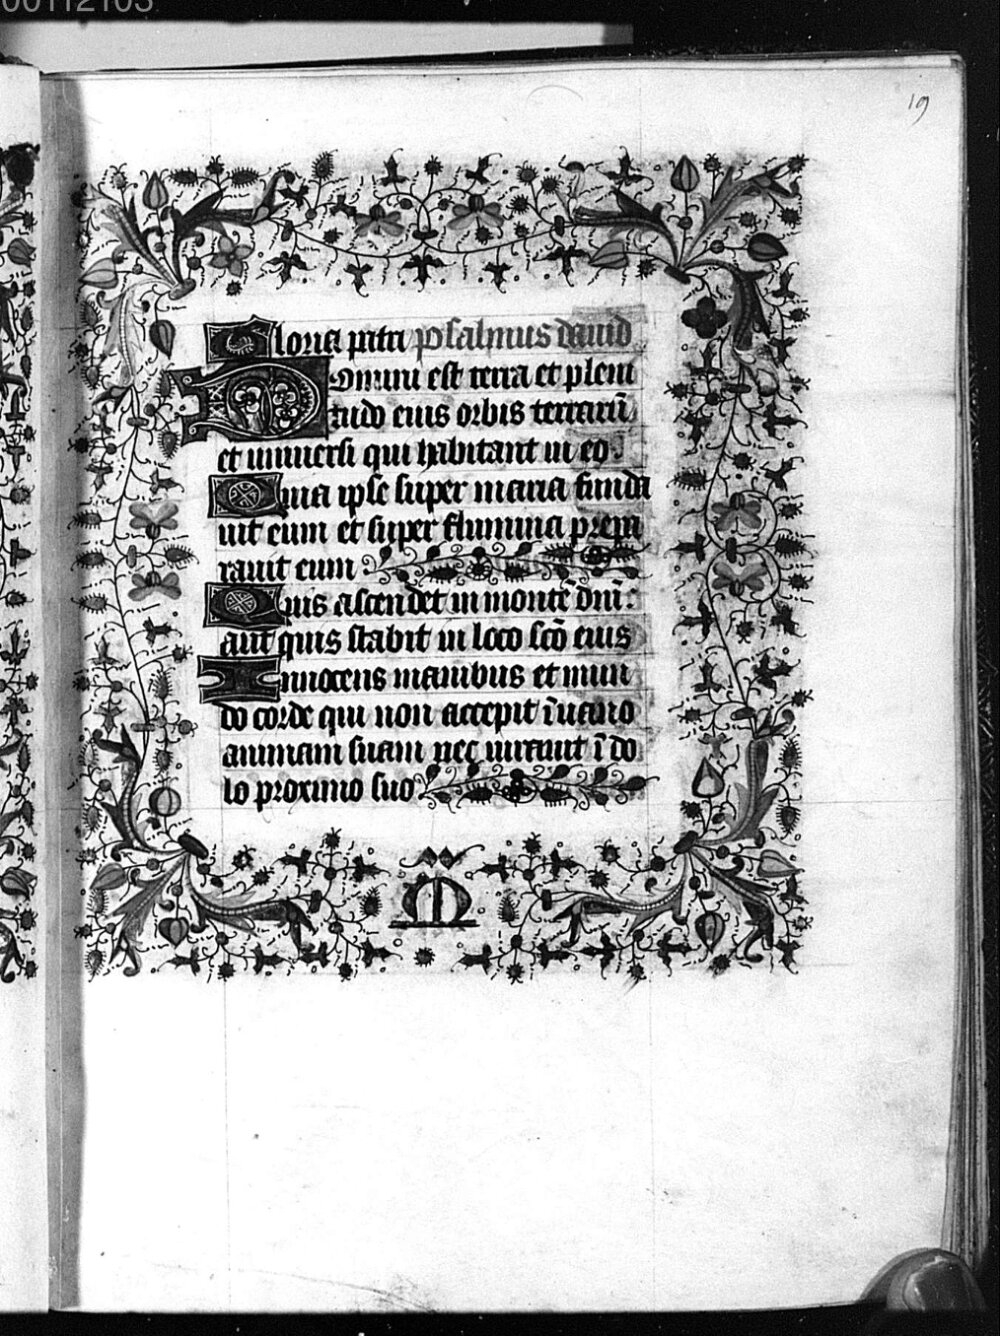 00112103
19
Gloria patri psalmus dauid
Domini est terra et pleni
tudo eius orbis terrarū
et uniuersi qui habitant in eo.
Quia ipse super maria funda
uit eum et super flumina prepa
rauit eum
Quis ascendet in montē dn̄i:
aut quis stabit in loco sc̄o eius
Innocens manibus et mun
do corde qui non accepit ī uano
animam suam nec iurauit ī do
lo proximo suo
M